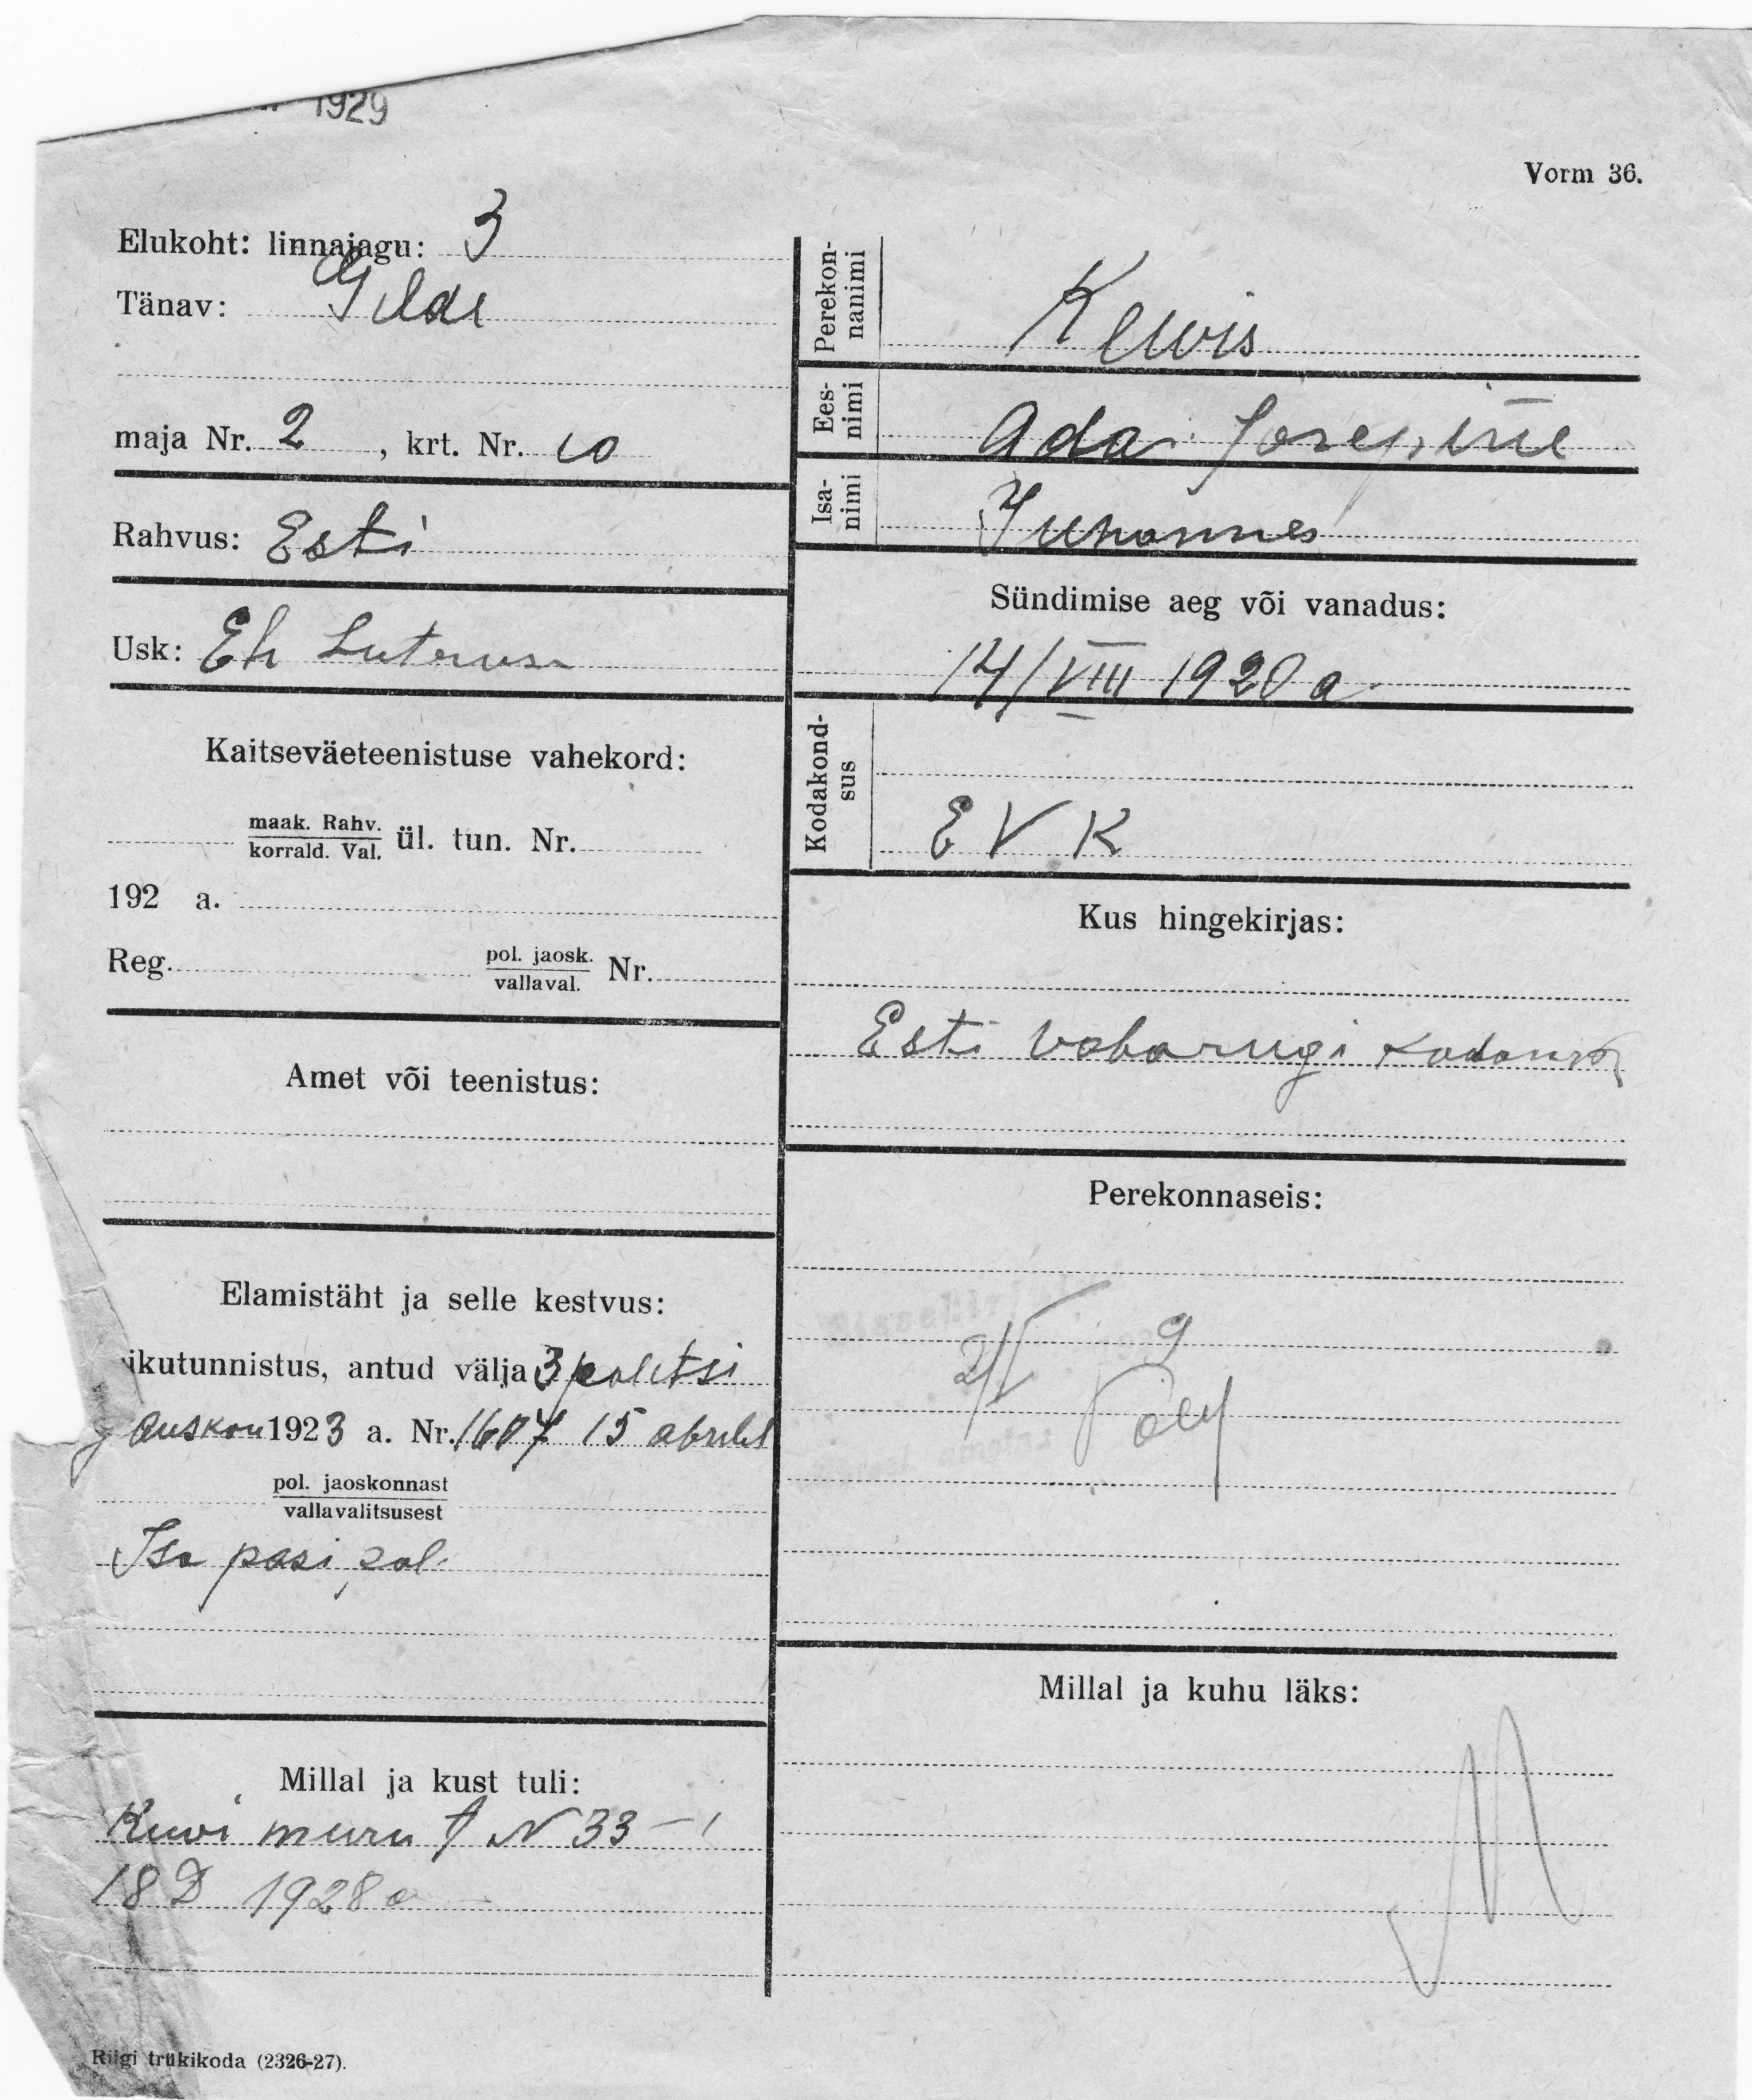 1929
Vorm 36.
Elukoht: linnajagu: 3
Tänav: Gilde
maja Nr. 2, krt. Nr. 10
Rahvus: Esti
Usk: Eh Luterusu
Kaitseväeteenistuse vahekord:
maak. Rahv.
korrald. Val. ül. tun. Nr.
192 a.
Reg. pol. jaosk.
vallaval. Nr.
Amet või teenistus:
Elamistäht ja selle kestvus:
ikutunnistus, antud välja 3 politsi
jauskon 1923 a. Nr. 1607 15 abrilil
pol. jaoskonnast
vallavalitsusest
Isa pasi pal.
Millal ja kust tuli:
Kuvi muru t N 33 – 1
18 D 1928 a
Riigi trükikoda (2326-27).
Perekon-
nanimi
Kewis
Ees-
nimi
Ada Josepine
Isa-
nimi
Juhannes
Sündimise aeg või vanadus:
14/VIII 1920 a.
Kodakond-
sus
E V K
Kus hingekirjas:
Esti vabariigi
Perekonnaseis:
Millal ja kuhu läks: